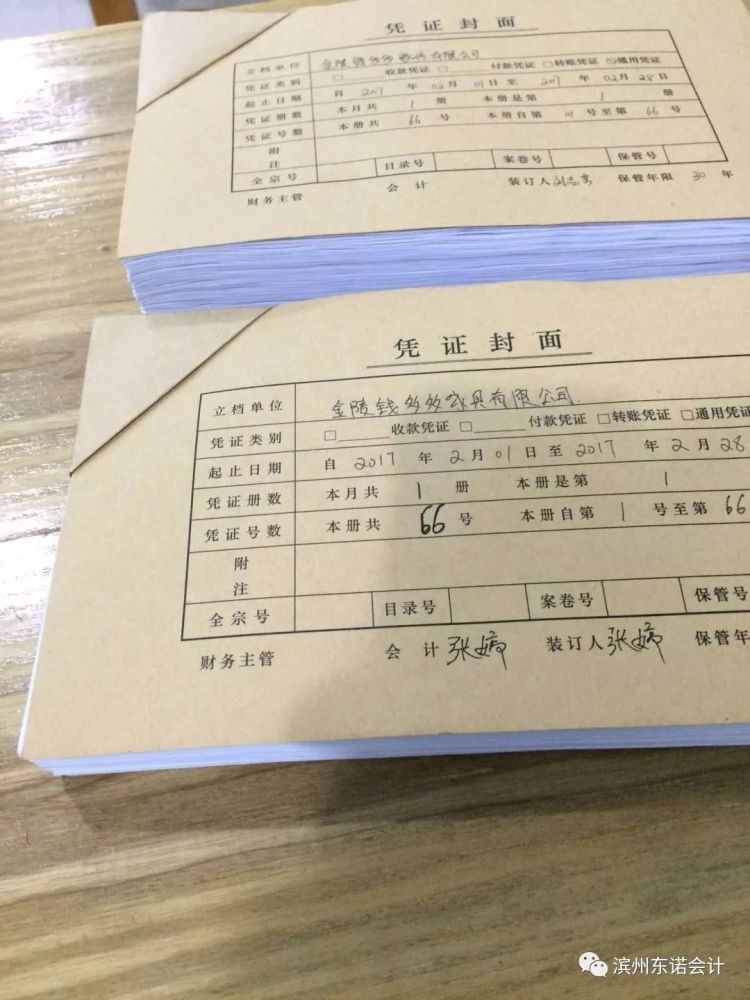 凭证封面
立档单位 金陵钱多多家具有限公司
凭证类别 □ 收款凭证 □ 付款凭证 □转账凭证 ☑通用凭证
起止日期 自 2017 年 02 月 01 日 至 2017 年 02 月 28 日
凭证册数 本月共 1 册 本册是第 1 册
凭证号数 本册共 66 号 本册自第 01 号至第 66 号
附
注
全宗号 目录号 案卷号 保管号
财务主管 会计 装订人 保管年限 30 年
凭证封面
立档单位 金陵钱多多家具有限公司
凭证类别 □ 收款凭证 □ 付款凭证 □转账凭证 □通用凭证
起止日期 自 2017 年 2 月 01 日 至 2017 年 2 月 28
凭证册数 本月共 1 册 本册是第 1
凭证号数 本册共 66 号 本册自第 1 号至第 66
附
注
全宗号 目录号 案卷号 保管号
财务主管 会计 张 装订人 张 保管年
滨州东诺会计